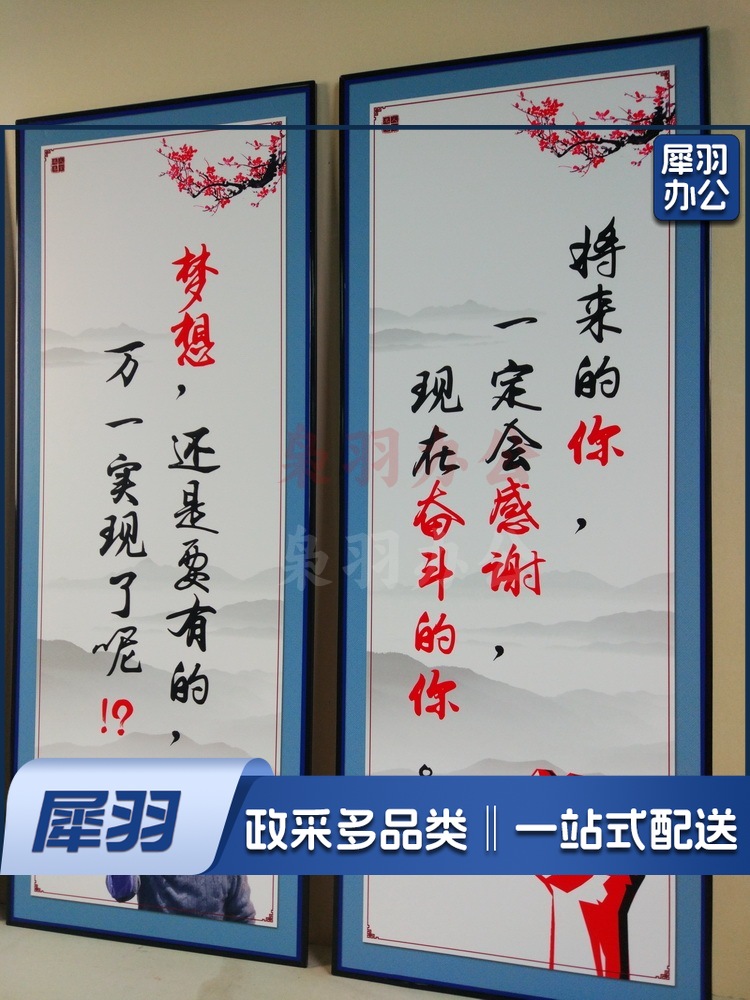 犀羽
办公
将来的你，
一定会感谢，
现在奋斗的你。
梦想，还是要有的，
万一实现了呢!?
枭羽办公
枭羽办公
犀羽
政采多品类 || 一站式配送